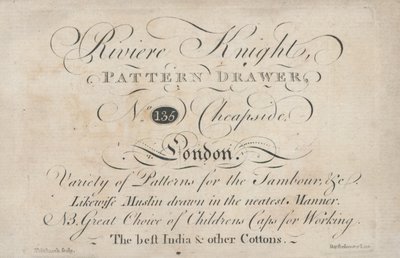 Riviere Knight,
PATTERN DRAWER,
No. 135 Cheapside.
London.
Variety of Patterns for the Tambour, &c.
Likewiſe Muslin drawn in the neatest Manner.
NB. Great Choice of Childrens Caps for Working.
The beſt India & other Cottons.
Sculp.